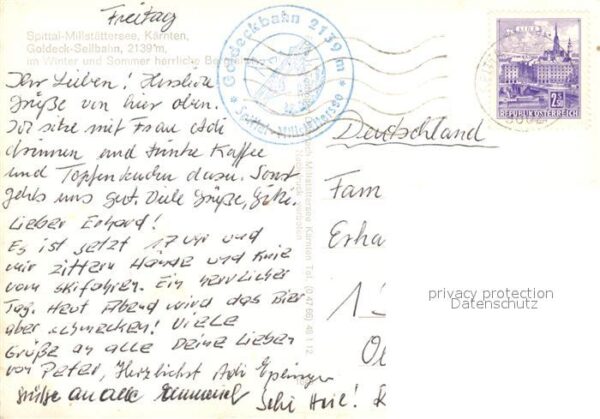 Freitag
Spittal-Millstättersee, Kärnten,
Goldeck-Seilbahn, 2139 m,
im Winter und Sommer herrliche
Goldeckbahn 2139 m
Spittal-Millstättersee
2.50
REPUBLIK ÖSTERREICH
Ihr Lieben! Herzliche
Grüße von hier oben.
Ich sitze mit Frau Adi
drinnen und trinke Kaffee
und Topfenkuchen dazu. Sonst
gehts uns gut. Viele Grüße,
Lieber Erhard!
Es ist jetzt 17 Uhr und
mir zittern Hände und Knie
vom Skifahren. Ein herrlicher
Tag. Heut Abend wird das Bier
aber schmecken! Viele
Grüße an alle Deine Lieben
von Peter, Herzlichst Adi
Grüße an alle
Deutschland
Fam
Erha
privacy protection
Datenschutz